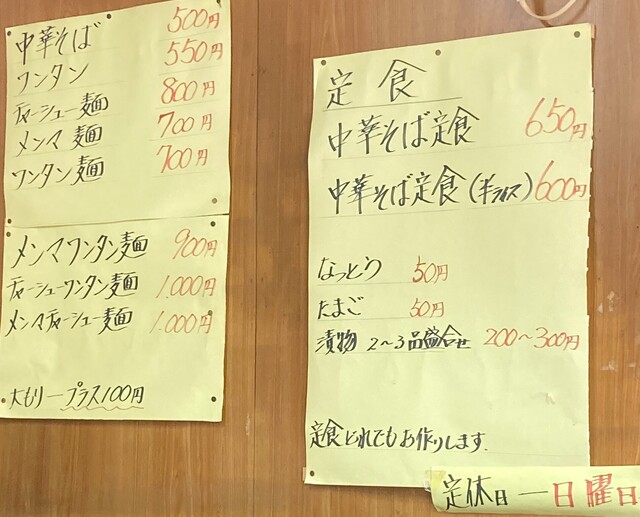 中華そば 500円
ワンタン 550円
チャーシュー麺 800円
メンマ麺 700円
ワンタン麺 700円
メンマワンタン麺 900円
チャーシューワンタン麺 1.000円
メンマチャーシュー麺 1.000円
大もりープラス100円
定食
中華そば定食 650円
中華そば定食(半ライス) 600円
なっとう 50円
たまご 50円
漬物 2～3品盛合せ 200～300円
定食どれでもお作りします.
定休日ー日曜日